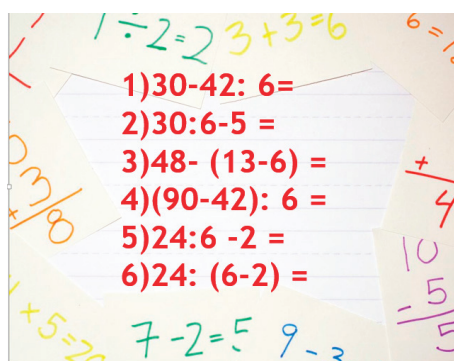 1 ÷ 2 = 2
3 + 3 = 6
6 =
1)30-42: 6=
2)30:6-5 =
3)48- (13-6) =
4)(90-42): 6 =
5)24:6 -2 =
6)24: (6-2) =
3/8
+
4
10
- 5
5
+ 5 = 20
7 - 2 = 5
9 - 3